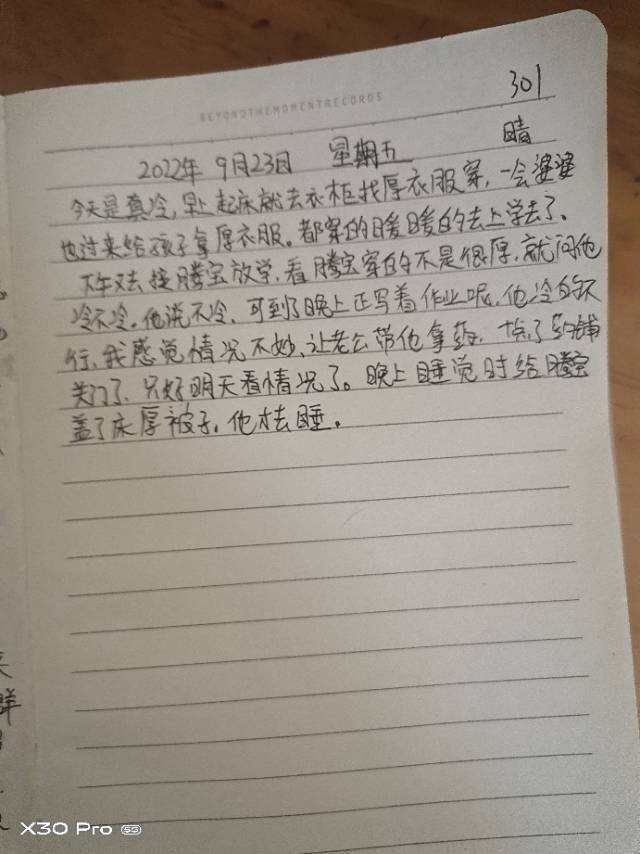 BEYONDTHEMOMENTRECORDS
301
晴
2022年 9月23日 星期五
今天是真冷,早上起床就去衣柜找厚衣服穿,一会婆婆
也过来给孩子拿厚衣服。都穿的暖暖的去上学去了。
下午又去接腾宝放学,看腾宝穿的不是很厚,就问他
冷不冷,他说不冷,可到了晚上正写着作业呢,他冷的不
行,我感觉情况不妙,让老公带他拿药,十点了药铺
关门了,只好明天看情况了。晚上睡觉时给腾宝
盖了床厚被子,他才去睡。
X30 Pro 5G